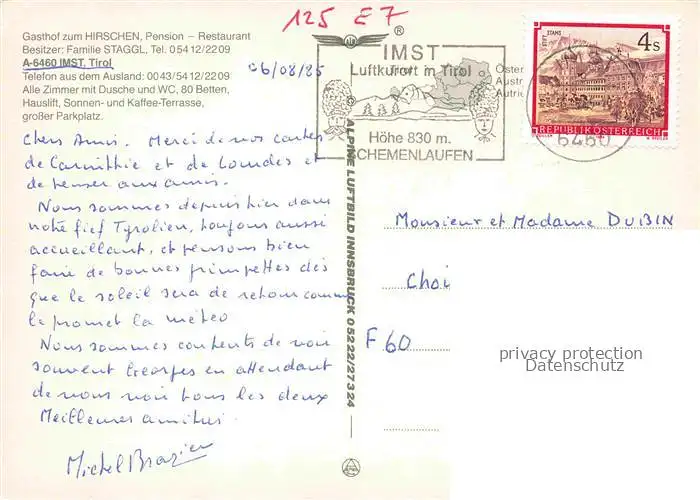 125 E7
Gasthof zum HIRSCHEN, Pension – Restaurant
Besitzer: Familie STAGGL, Tel. 05412/2209
A-6460 IMST, Tirol
Telefon aus dem Ausland: 0043/5412/2209
Alle Zimmer mit Dusche und WC, 80 Betten,
Hauslift, Sonnen- und Kaffee-Terrasse,
großer Parkplatz.
06/08/85
®
IMST
Luftkurort in Tirol
Höhe 830 m.
SCHEMENLAUFEN
STIFT STAMS
4 S
REPUBLIK ÖSTERREICH
6460
Chers Amis. Merci de vos cartes
de Carinthie et de Lourdes et
de penser aux amis.
Nous sommes depuis hier dans
notre fief Tyrolien, toujours aussi
accueillant, et pensons bien
faire de bonnes grimpettes dès
que le soleil sera de retour comme
le promet la météo
Nous sommes contents de voir
souvent Georges en attendant
de vous voir tous les deux
Meilleures amitiés.
Michel Brazier
© ALPINE LUFTBILD INNSBRUCK 05222/27324
Monsieur et Madame DUBIN
Choi
F 60
privacy protection
Datenschutz